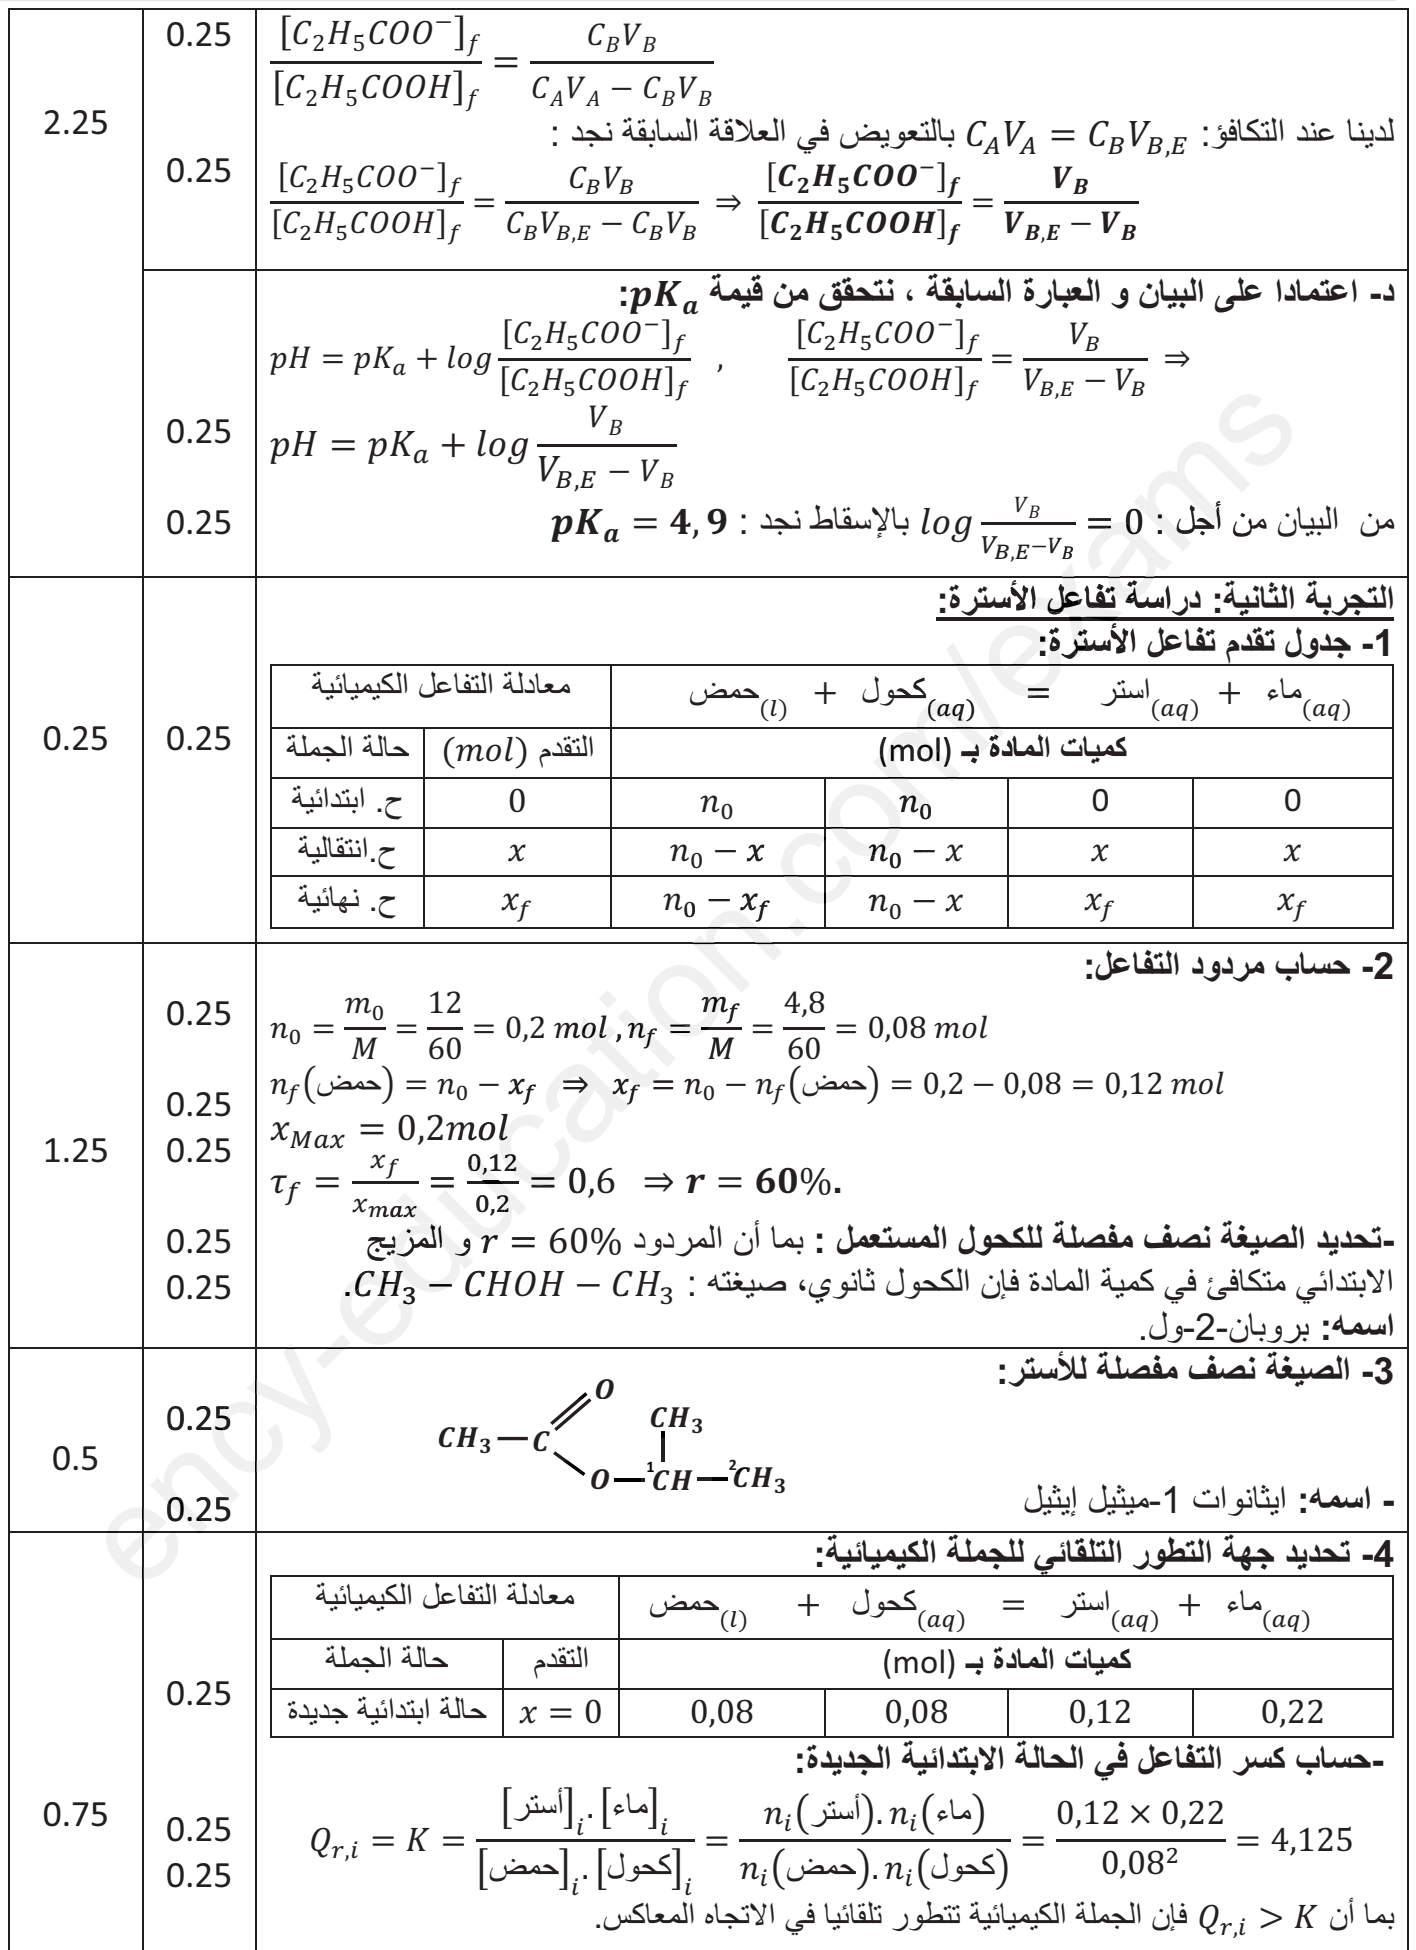 2.25
0.25
[C₂H₅COO⁻]_f / [C₂H₅COOH]_f = C_B V_B / (C_A V_A − C_B V_B)
لدينا عند التكافؤ: C_A V_A = C_B V_{B,E} بالتعويض في العلاقة السابقة نجد :
0.25
[C₂H₅COO⁻]_f / [C₂H₅COOH]_f = C_B V_B / (C_B V_{B,E} − C_B V_B) ⇒ [C₂H₅COO⁻]_f / [C₂H₅COOH]_f = V_B / (V_{B,E} − V_B)
د- اعتمادا على البيان و العبارة السابقة ، نتحقق من قيمة pK_a:
pH = pK_a + log [C₂H₅COO⁻]_f / [C₂H₅COOH]_f , [C₂H₅COO⁻]_f / [C₂H₅COOH]_f = V_B / (V_{B,E} − V_B) ⇒
0.25
pH = pK_a + log V_B / (V_{B,E} − V_B)
0.25
من البيان من أجل : log V_B / (V_{B,E} − V_B) = 0 بالإسقاط نجد : pK_a = 4,9
التجربة الثانية: دراسة تفاعل الأسترة:
1- جدول تقدم تفاعل الأسترة:
0.25
0.25
معادلة التفاعل الكيميائية حمض(l) + كحول(aq) = استر(aq) + ماء(aq)
حالة الجملة التقدم (mol) كميات المادة بـ (mol)
ح. ابتدائية 0 n₀ n₀ 0 0
ح.انتقالية x n₀ − x n₀ − x x x
ح. نهائية x_f n₀ − x_f n₀ − x x_f x_f
2- حساب مردود التفاعل:
1.25
0.25
n₀ = m₀/M = 12/60 = 0,2 mol , n_f = m_f/M = 4,8/60 = 0,08 mol
0.25
n_f(حمض) = n₀ − x_f ⇒ x_f = n₀ − n_f(حمض) = 0,2 − 0,08 = 0,12 mol
0.25
x_Max = 0,2mol
τ_f = x_f/x_max = 0,12/0,2 = 0,6 ⇒ r = 60%.
0.25
-تحديد الصيغة نصف مفصلة للكحول المستعمل : بما أن المردود r = 60% و المزيج
0.25
الابتدائي متكافئ في كمية المادة فإن الكحول ثانوي، صيغته : CH₃ − CHOH − CH₃.
اسمه: بروبان-2-ول.
3- الصيغة نصف مفصلة للأستر:
0.5
0.25
O
CH₃
CH₃ — C
O — ¹CH — ²CH₃
0.25
- اسمه: ايثانوات 1-ميثيل إيثيل
4- تحديد جهة التطور التلقائي للجملة الكيميائية:
معادلة التفاعل الكيميائية حمض(l) + كحول(aq) = استر(aq) + ماء(aq)
حالة الجملة التقدم كميات المادة بـ (mol)
0.25
حالة ابتدائية جديدة x = 0 0,08 0,08 0,12 0,22
-حساب كسر التفاعل في الحالة الابتدائية الجديدة:
0.75
0.25
Q_{r,i} = K = [أستر]_i . [ماء]_i / [حمض]_i . [كحول]_i = n_i(أستر). n_i(ماء) / n_i(حمض). n_i(كحول) = 0,12 × 0,22 / 0,08² = 4,125
0.25
بما أن Q_{r,i} > K فإن الجملة الكيميائية تتطور تلقائيا في الاتجاه المعاكس.
ency-education.com/exams